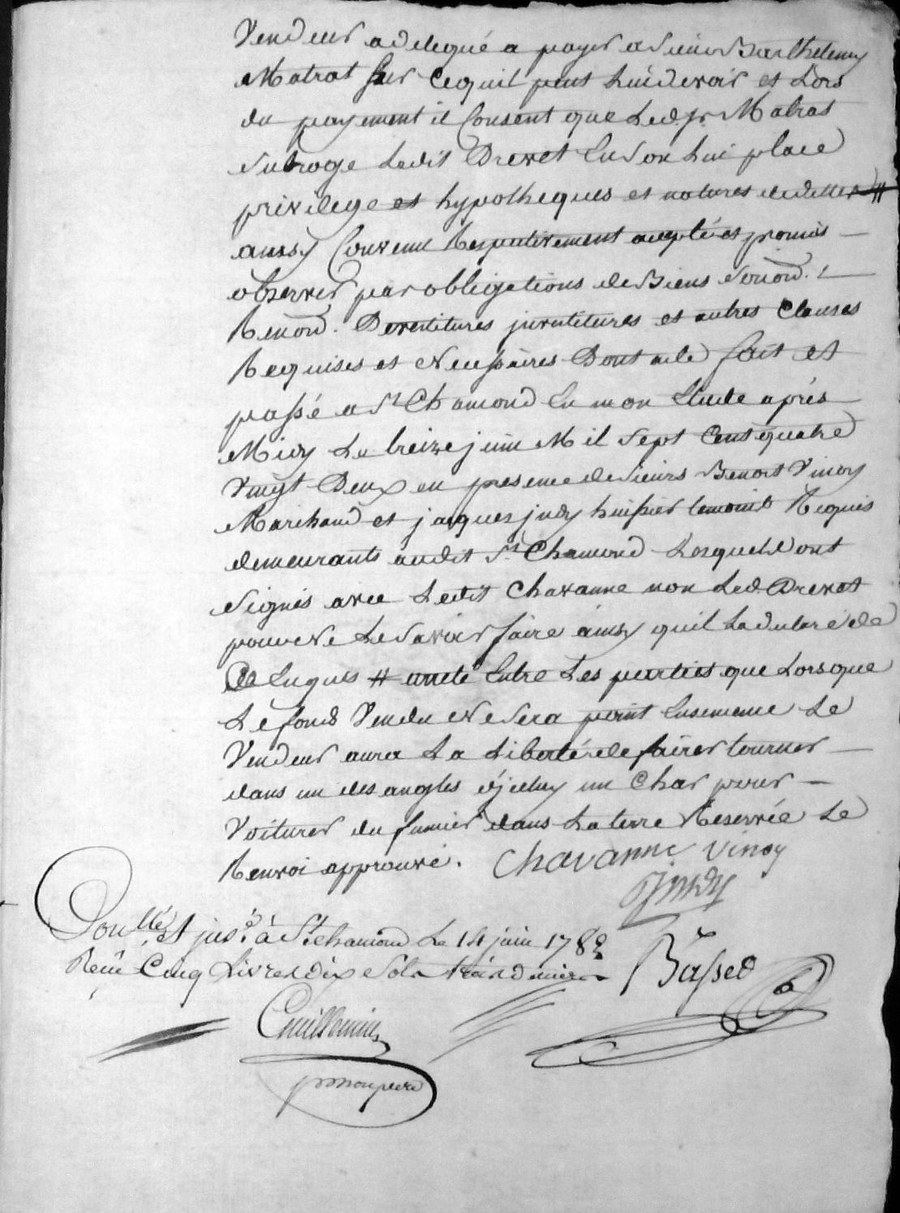 Vendeur a delegué a payer a Sieur Barthelemy
Matrat sur cequil peut lui devoir et Lors
du payement il Consent que Led sr. Matrat
Subroge Ledit Drevet En Son Lieu place
privilege et hypotheques et natures dedettes #
ainsy Convenu Respectivement accepté et promis
observer par obligations de Biens Soumon.
Renon. Devetitures invetitures et autres Clauses
Requises et Necessaires Dont acte fait et
passé a St. Chamond En mon Etude après
Midy Le treize juin Mil Sept Cent quatre
Vingt Deux en presence de Sieurs Benoit Vinoy
Marchand et jacques judy huissier temoins Requis
demeurants audit St. Chamond Lesquels ont
Signés avec Ledit Chavanne non Led Drevet
pour Ne Le Savoir faire ainsy quil La declaré de
Ce Enquis # arreté Entre Les parties que Lorsque
Le fond Vendu Ne Sera point Ensemencé Le
Vendeur aura La Liberté de faire tourner
dans un des angles d'jceluy un Char pour
Voiturer du fumier dans La terre Reservée Le
Renvoi approuvé. Chavanne Vinoy
Judy
Conllé. & jnsé. à St. chamond Le 14 juin 1782
Reçu Cinq Livres dix Sols
Basset
Guillemin